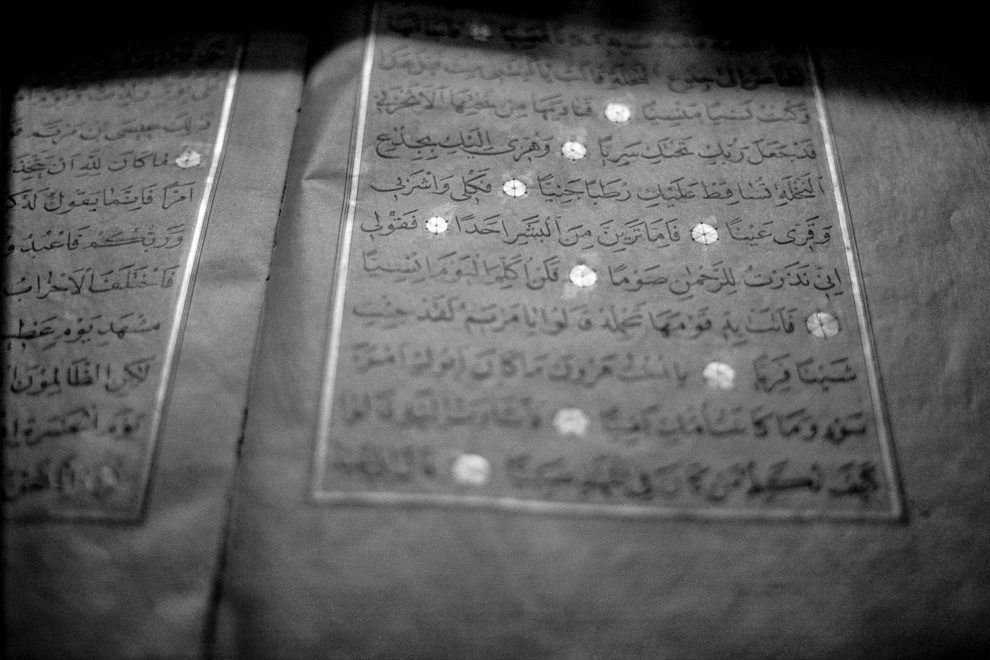 المخاض الى جذع النخلة قالت يا ليتنى مت قبل هذا
وَكُنْتُ نَسْيًا مَنْسِيًّا فَنَادٰيهَا مِنْ تَحْتِهَا اَلَّا تَحْزَنِى
قَدْ جَعَلَ رَبُّكِ تَحْتَكِ سَرِيًّا وَهُزِّى اِلَيْكِ بِجِذْعِ
النَّخْلَةِ تُسَاقِطْ عَلَيْكِ رُطَبًا جَنِيًّا فَكُلِى وَاشْرَبِى
وَقَرِّى عَيْنًا فَاِمَّا تَرَيِنَّ مِنَ الْبَشَرِ اَحَدًا فَقُولِى
اِنِّى نَذَرْتُ لِلرَّحْمٰنِ صَوْمًا فَلَنْ اُكَلِّمَ الْيَوْمَ اِنْسِيًّا
فَاَتَتْ بِهِ قَوْمَهَا تَحْمِلُهُ قَالُوا يَا مَرْيَمُ لَقَدْ جِئْتِ
شَيْئًا فَرِيًّا يا اخت هرون ما كان ابوك امرا
سوء وما كانت امك بغيا فاشارت اليه قالوا
كيف نكلم من كان فى المهد صبيا
عيسى بن مريم
مَا كَانَ لِلّٰهِ اَنْ يَتَّخِذَ
اَمْرًا فَاِنَّمَا يَقُولُ لَهُ
وَرَبُّكُمْ فَاعْبُدُو
فَاخْتَلَفَ الْاَحْزَابُ
مَشْهَدِ يَوْمٍ عَظِيمٍ
لٰكِنِ الظَّالِمُونَ
يَوْمَ الْحَسْرَةِ